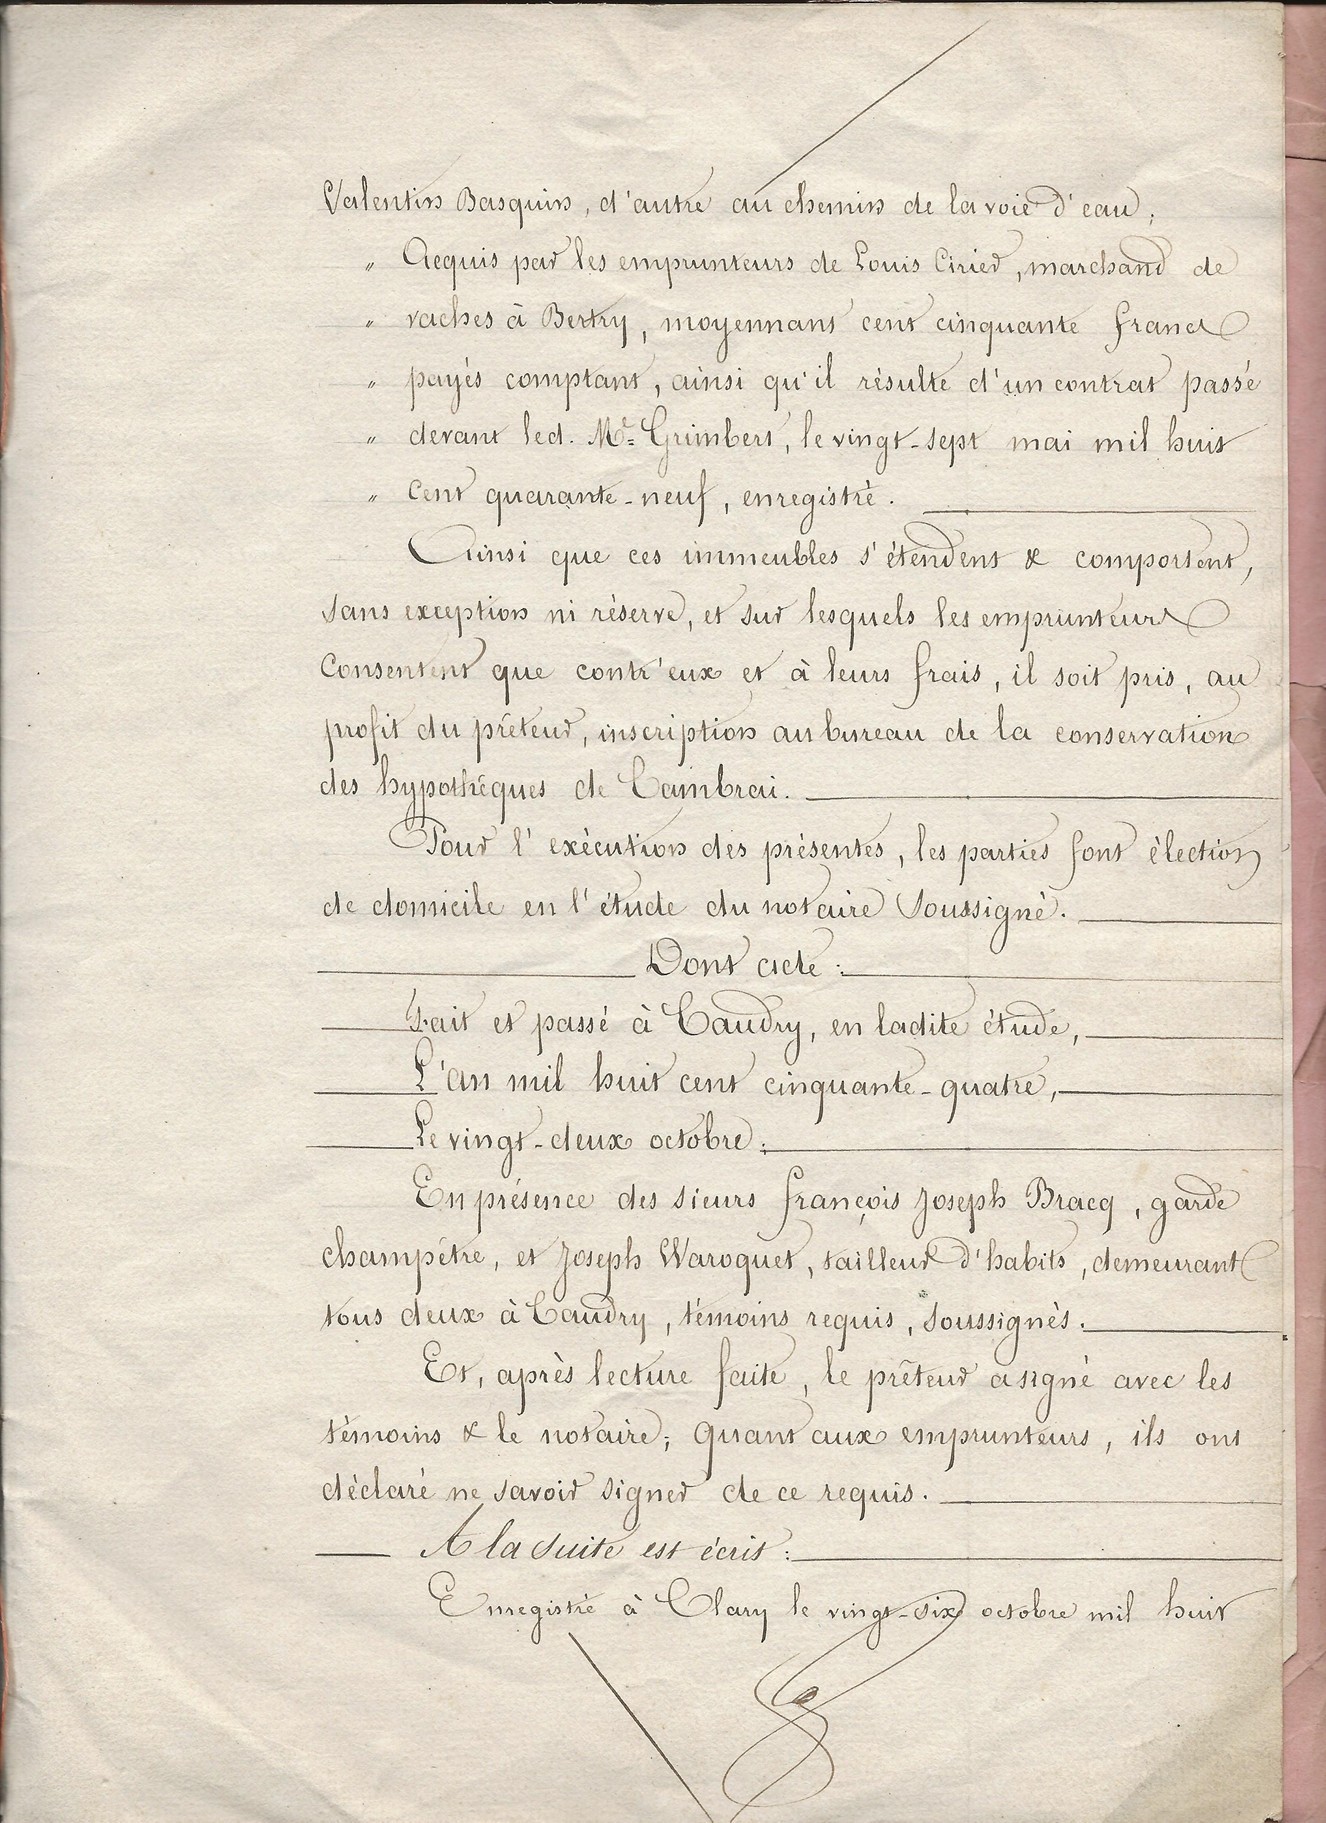 Valentin Basquin, d'autre au chemin de la voie d'eau ;
" Acquis par les emprunteurs de Louis Cirier, marchand de
" vaches à Bertry, moyennant cent cinquante francs
" payés comptant, ainsi qu'il résulte d'un contrat passé
" devant led. Me Grimbert, le vingt-sept mai mil huit
" cent quarante-neuf, enregistré.
Ainsi que ces immeubles s'étendent & comportent,
sans exception ni réserve, et sur lesquels les emprunteurs
consentent que contr'eux et à leurs frais, il soit pris, au
profit du prêteur, inscription au bureau de la conservation
des hypothèques de Cambrai.
Pour l'exécution des présentes, les parties font élection
de domicile en l'étude du notaire soussigné.
Dont acte :
Fait et passé à Caudry, en ladite étude,
L'an mil huit cent cinquante-quatre,
Le vingt-deux octobre ;
En présence des sieurs françois Joseph Bracq, garde
champêtre, et Joseph Waroquet, tailleur d'habits, demeurant
tous deux à Caudry, témoins requis, soussignés.
Et, après lecture faite, le prêteur a signé avec les
témoins & le notaire ; quant aux emprunteurs, ils ont
déclaré ne savoir signer de ce requis.
A la suite est écrit :
Enregistré à Clary le vingt-six octobre mil huit